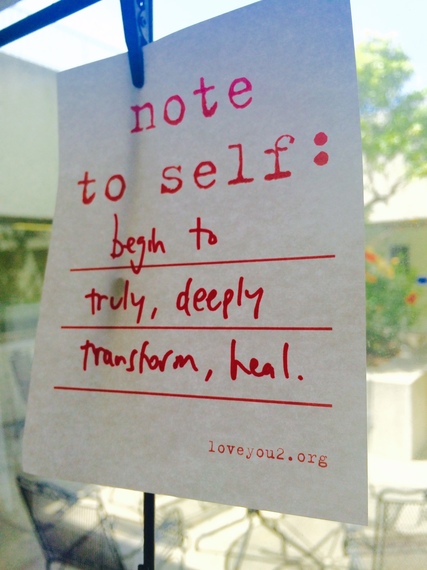 note
to self:
begin to
truly, deeply
transform, heal.
loveyou2.org